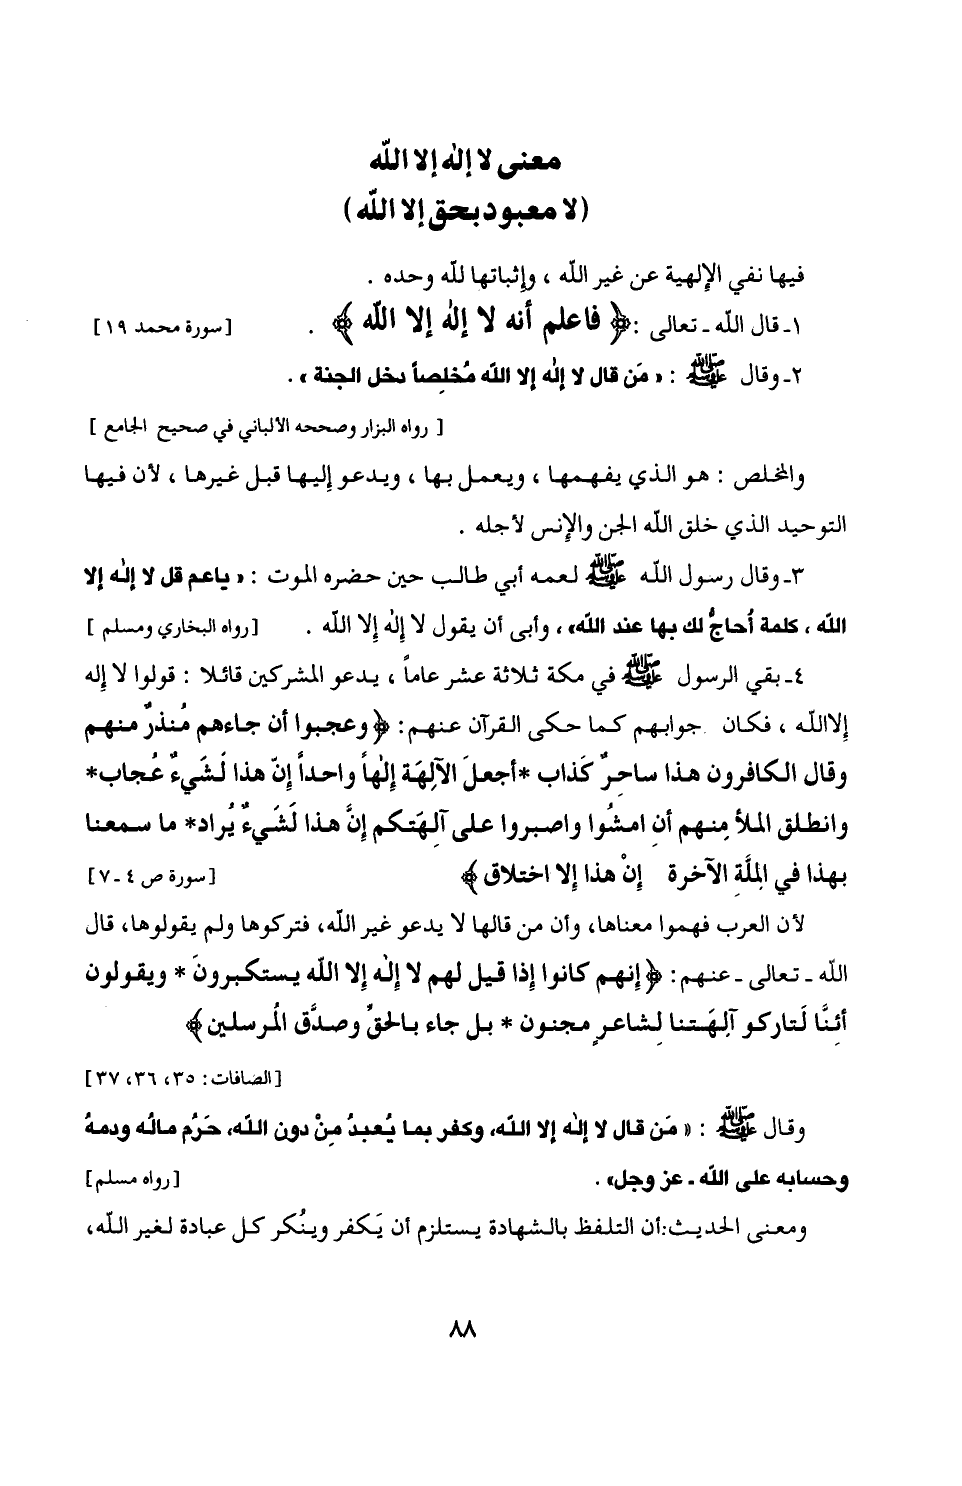 معنى لا إله إلا الله
(لا معبود بحق إلا الله)
فيها نفي الإلهية عن غير الله ، وإثباتها لله وحده .
١ـ قال الله ـ تعالى : ﴿ فاعلم أنه لا إله إلا الله ﴾ . [سورة محمد ١٩]
٢ـ وقال ﷺ : « مَن قال لا إله إلا الله مُخلِصاً دخل الجنة » .
[ رواه البزار وصححه الألباني في صحيح الجامع ]
والمخلص : هو الذي يفهمها ، ويعمل بها ، ويدعو إليها قبل غيرها ، لأن فيها
التوحيد الذي خلق الله الجن والإنس لأجله .
٣ـ وقال رسول الله ﷺ لعمه أبي طالب حين حضره الموت : « ياعم قل لا إله إلا
الله ، كلمة أُحاجُّ لك بها عند الله» ، وأبى أن يقول لا إله إلا الله . [رواه البخاري ومسلم ]
٤ـ بقي الرسول ﷺ في مكة ثلاثة عشر عاماً ، يدعو المشركين قائلا : قولوا لا إله
إلاالله ، فكان جوابهم كما حكى القرآن عنهم: ﴿ وعجبوا أن جاءهم مُنذرٌ منهم
وقال الكافرون هذا ساحرٌ كَذاب *أجعلَ الآلِهَة إلٰهاً واحداً إنّ هذا لَشَيءٌ عُجاب*
وانطلق الملأ مِنهم أن امشُوا واصبروا على آلِهَتكم إنَّ هذا لَشَيءٌ يُراد* ما سمعنا
بهذا في المِلَّةِ الآخرة إنْ هذا إلا اختلاق ﴾ [سورة ص ٤ ـ٧]
لأن العرب فهموا معناها، وأن من قالها لا يدعو غير الله، فتركوها ولم يقولوها، قال
الله ـ تعالى ـ عنهم: ﴿ إنهم كانوا إذا قيل لهم لا إله إلا الله يستكبرونَ * ويقولون
أئِنَّا لَتاركو آلِهَتنا لِشاعرٍ مجنون * بل جاء بالحقِّ وصدَّق المُرسلين﴾
[الصافات: ٣٥، ٣٦، ٣٧]
وقال ﷺ : « مَن قال لا إله إلا الله، وكفر بما يُعبدُ مِنْ دون الله، حَرُم مالُه ودمهُ
وحسابه على الله ـ عز وجل» . [رواه مسلم]
ومعنى الحديث:أن التلفظ بالشهادة يستلزم أن يَكفر ويُنكر كل عبادة لغير الله،
٨٨